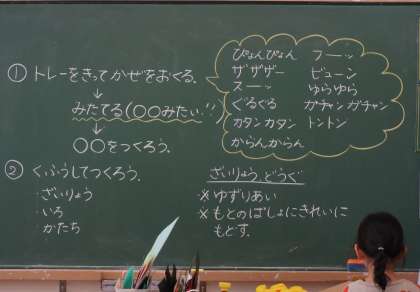 ① トレーをきってかぜをおくる.
↓
みたてる(○○みたい…)
↓
○○をつくろう.
ぴょんぴょん フーーッ
ザザザー ビューン
スーーッ ゆらゆら
ぐるぐる ガチャン ガチャン
カタン カタン トントン
からんからん
② くふうしてつくろう.
・ざいりょう
・いろ
・かたち
ざいりょう、どうぐ
※ ゆずりあい
※ もとのばしょにきれいに
もどす.